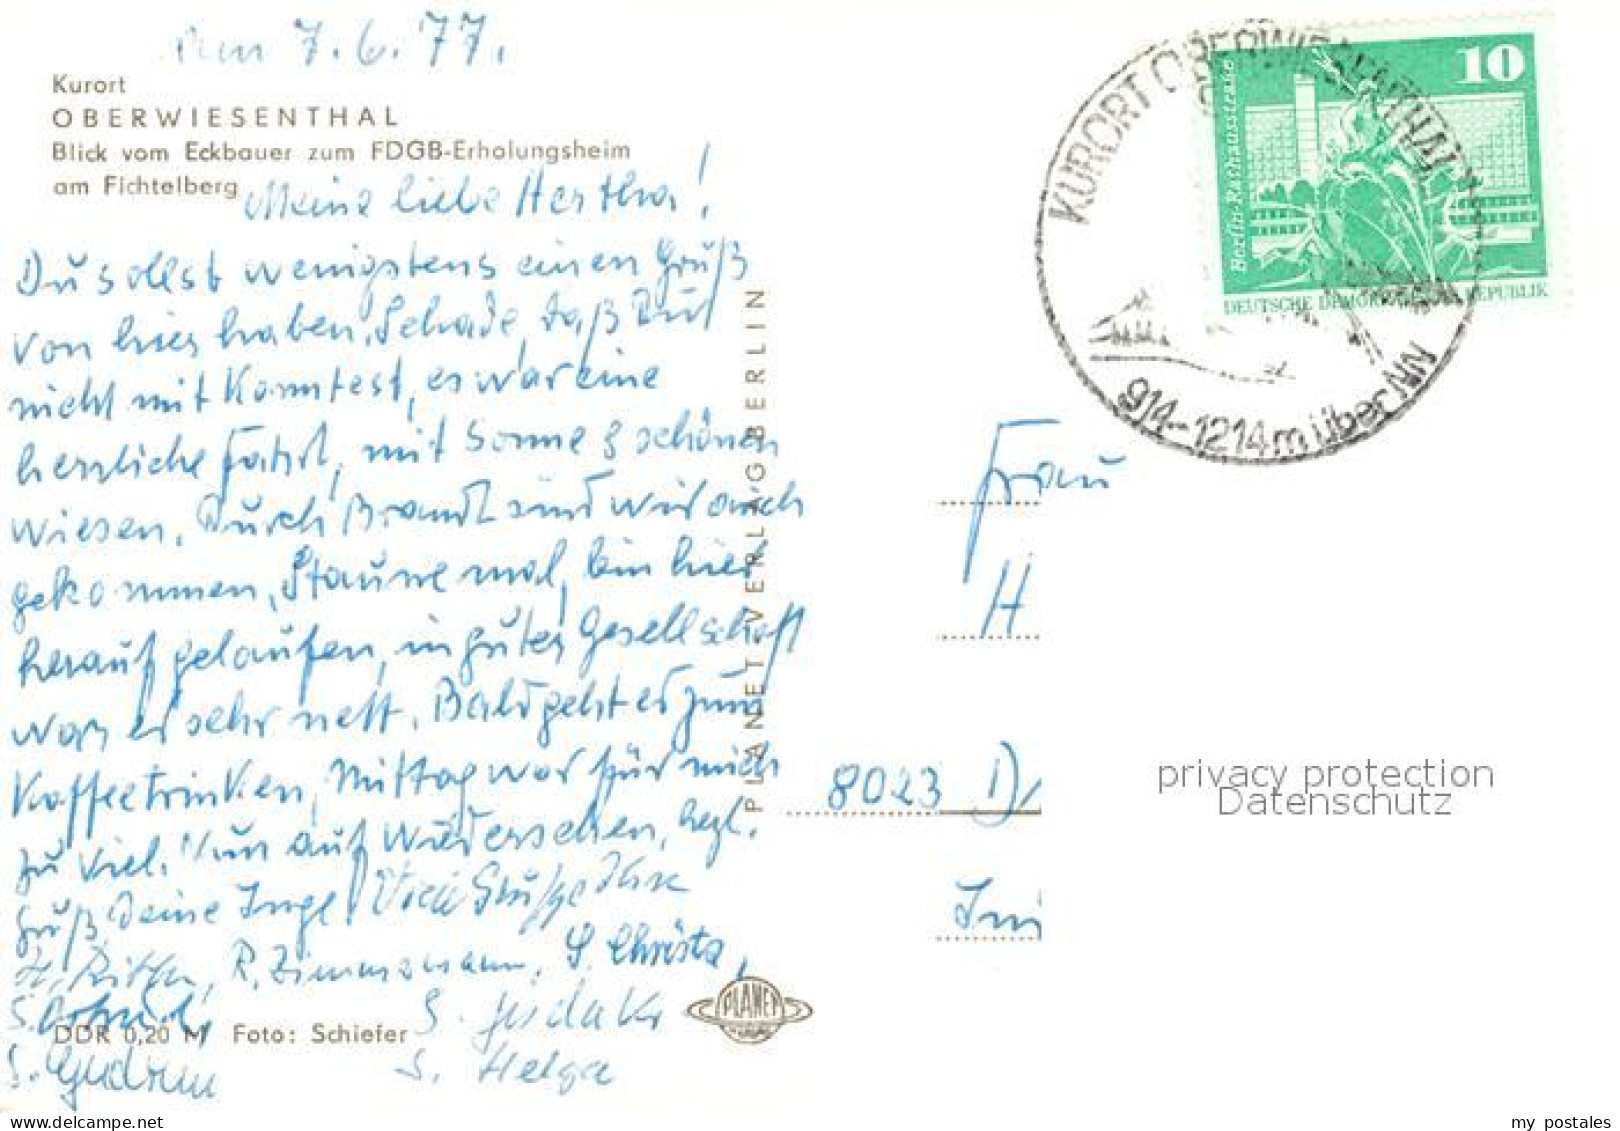 am 7.6.77.
Kurort
OBERWIESENTHAL
Blick vom Eckbauer zum FDGB-Erholungsheim
am Fichtelberg
Meine liebe Hertha!
Du sollst wenigstens einen Gruß
von hier haben. Schade, daß Du
nicht mit konntest, es war eine
herrliche Fahrt, mit Sonne & schönen
Wiesen. Durch Brand sind wir auch
gekommen, Staune mal, bin hier
herauf gelaufen, in guter Gesellschaft
war es sehr nett. Bald geht es zum
Kaffeetrinken, Mittag war für mich
zu viel. Nun auf Wiedersehen, herzl.
Gruß Deine Inge! Viele Grüße
R. Zimmermann, S. Christa,
S.
S. Gudrun
S.
S. Helga
DDR 0,20 M Foto: Schiefer
PLANET-VERLAG BERLIN
PLANET
KURORT OBERWIESENTHAL
914-1214m über NN
10
Berlin-Rathausstraße
DEUTSCHE DEMOKRATISCHE REPUBLIK
Frau
H
8023 D
privacy protection
Datenschutz
my postales